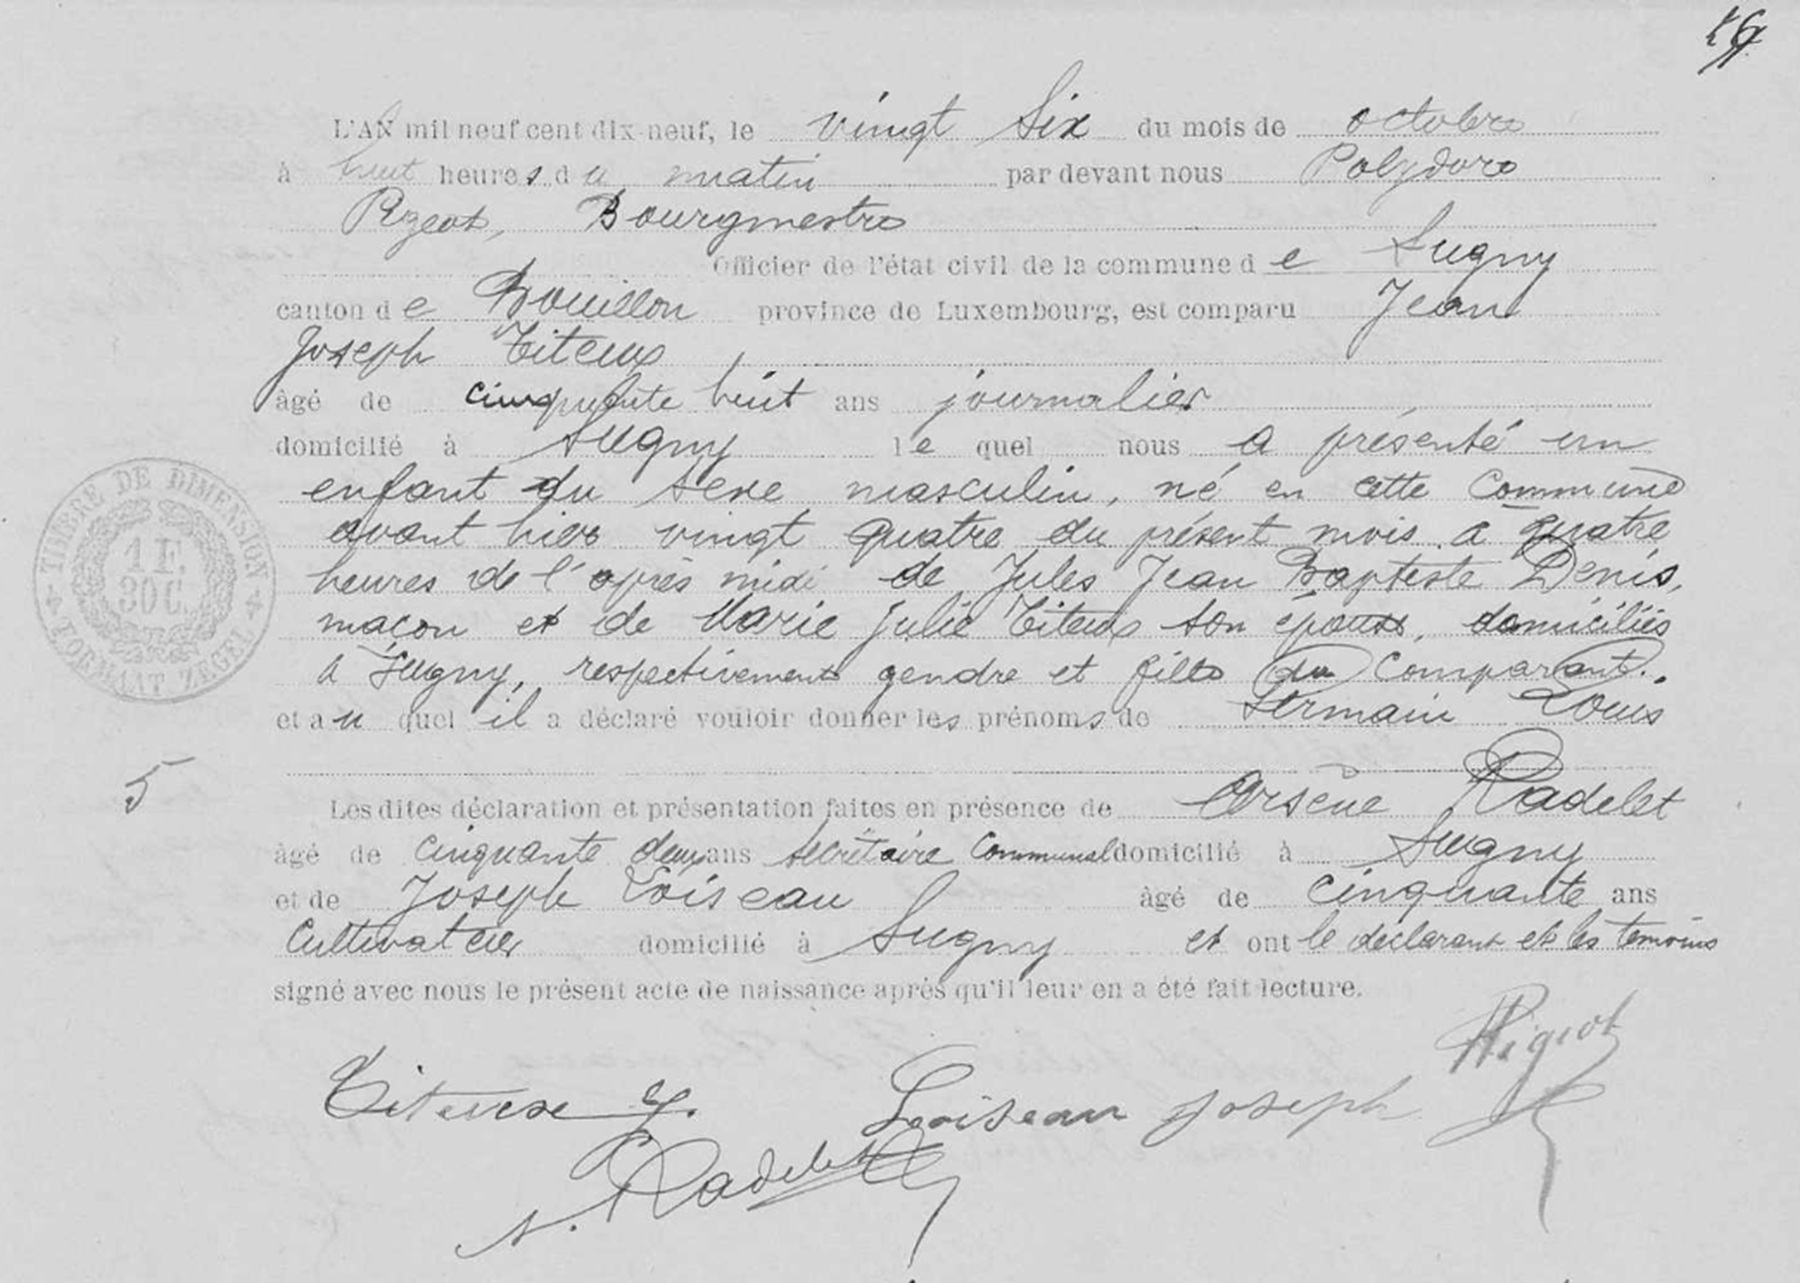 L'AN mil neuf cent dix-neuf, le vingt six du mois de octobre
à huit heures du matin par devant nous Polydore
Pigeot, Bourgmestre
Officier de l'état civil de la commune de Sugny
canton de Bouillon province de Luxembourg, est comparu Jean
Joseph Titeux,
âgé de cinquante huit ans journalier
domicilié à Sugny lequel nous a présenté un
enfant du sexe masculin, né en cette commune
avant hier vingt quatre du présent mois à quatre
TIMBRE DE DIMENSION
1 F.
30 C.
FORMAAT ZEGEL
heures de l'après midi de Jules Jean Baptiste Denis,
maçon et de Marie Julie Titeux son épouse, domiciliés
à Sugny, respectivement gendre et fille du comparant.
et auquel il a déclaré vouloir donner les prénoms de Germain Louis
5
Les dites déclaration et présentation faites en présence de Arsène Radelet
âgé de cinquante deux ans secrétaire communal domicilié à Sugny
et de Joseph Loiseau âgé de cinquante ans
cultivateur domicilié à Sugny et ont le déclarant et les temoins
signé avec nous le présent acte de naissance après qu'il leur en a été fait lecture.
PPigeot
Titeux J. Loiseau Joseph
A. Radelet